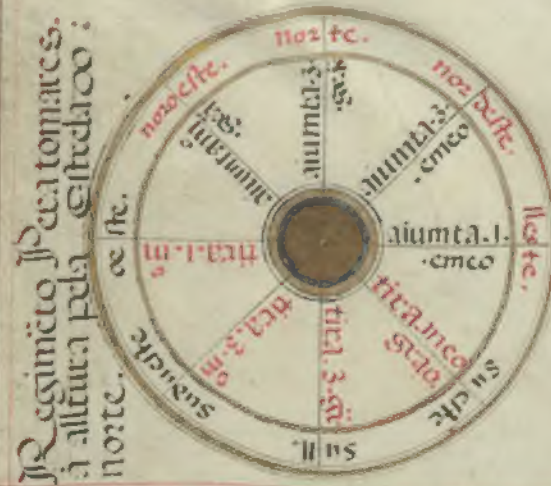 Regimẽto Pera tomares.
a alltura pela Estrela do :
norte.
norte.
nordeste.
lleste.
sueste
sull.
suduueste
oeste.
noroeste.
aiumta.3.
aiumta.3.
.emeo
aiumta.1.
.emeo
tira.meo
grao
tira.3.
tira.3.
tira.1.m
aiumta